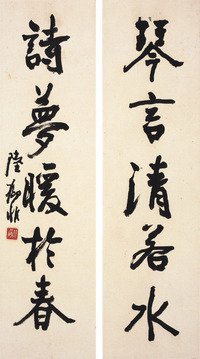 琴言清若水
詩夢暖於春
陸抑非